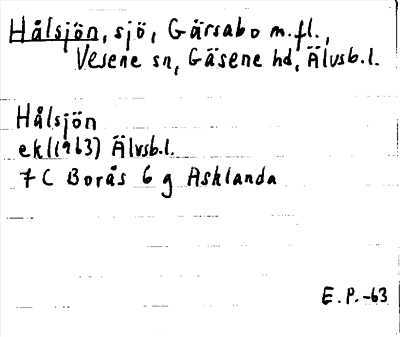 Hålsjön, sjö, Gärsabo m.fl.,
Vesene sn, Gäsene hd, Älvsb.l.
Hålsjön
ekl(1963) Älvsb.l.
7 C Borås 6 g Asklanda
E.P.-63